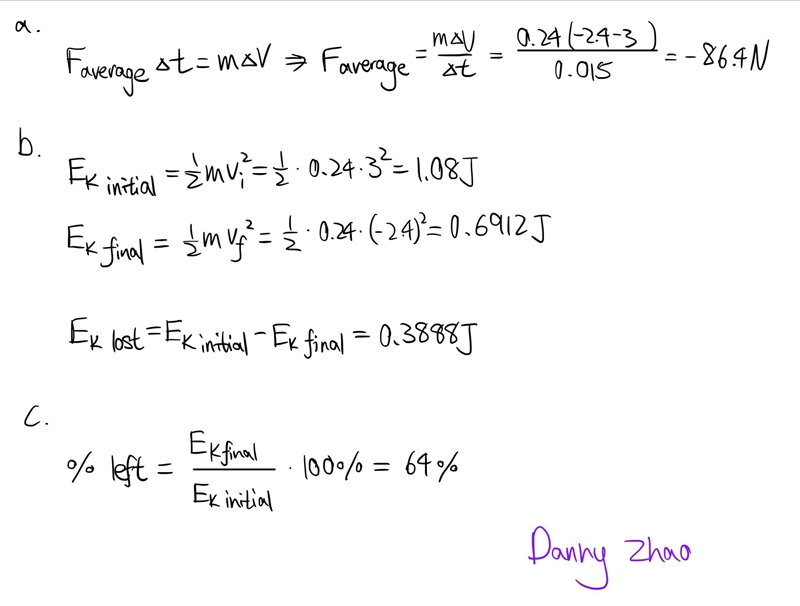 a.
F average Δt = mΔV ⇒ F average = mΔV/Δt = 0.24(-2.4-3)/0.015 = -86.4N
b.
E_K initial = 1/2 mv_i² = 1/2 · 0.24 · 3² = 1.08J
E_K final = 1/2 m v_f² = 1/2 · 0.24 · (-2.4)² = 0.6912J
E_K lost = E_K initial - E_K final = 0.3888J
c.
% left = E_K final / E_K initial · 100% = 64%
Danny Zhao